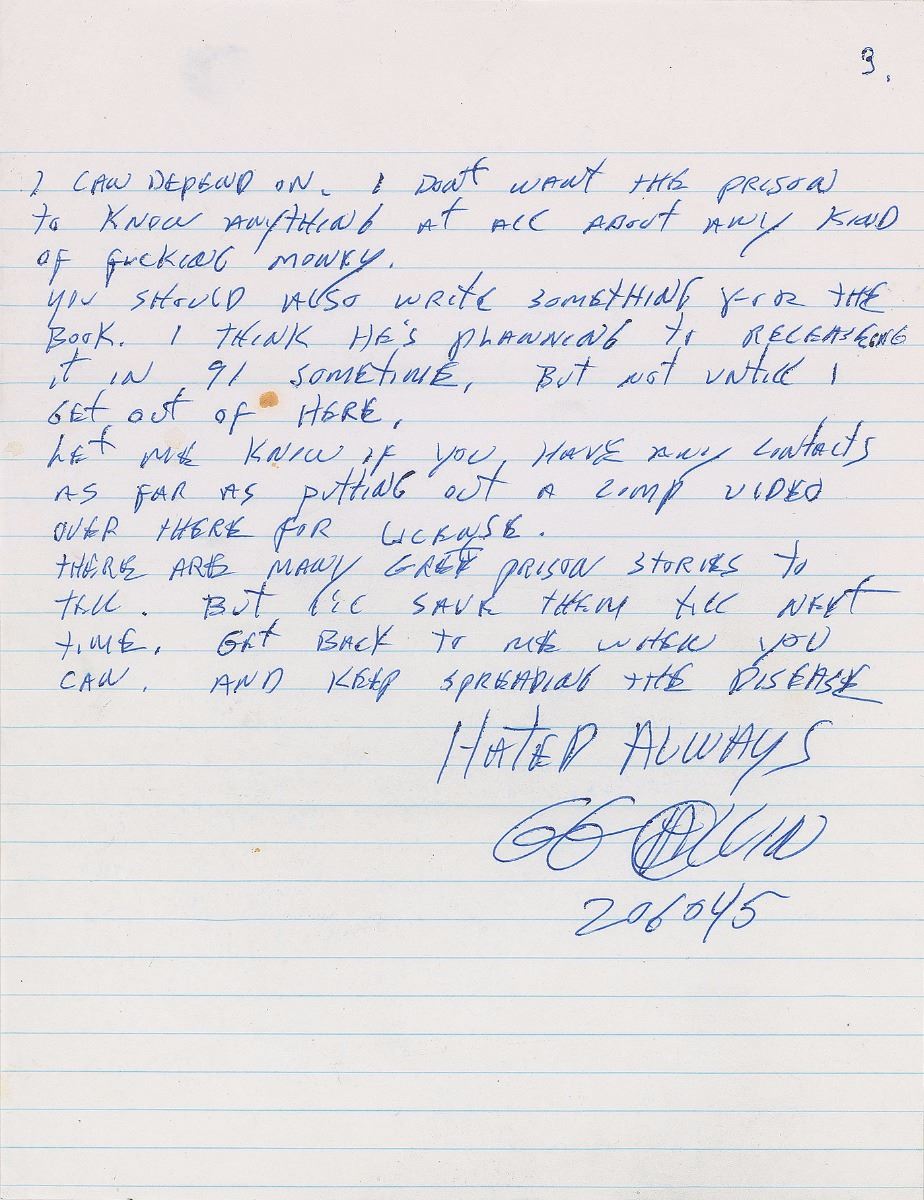 3.
I CAN DEPEND ON. I DONT WANT THE PRISON
TO KNOW ANYTHING AT ALL ABOUT ANY KIND
OF FUCKING MONEY.
YOU SHOULD ALSO WRITE SOMETHING FOR THE
BOOK. I THINK HE'S PLANNING TO RELEASEING
IT IN 91 SOMETIME, BUT NOT UNTILL I
GET OUT OF HERE.
LET ME KNOW IF YOU HAVE ANY CONTACTS
AS FAR AS PUTTING OUT A COMP VIDEO
OVER THERE FOR LICENSE.
THERE ARE MANY GREAT PRISON STORIES TO
TELL. BUT I'LL SAVE THEM TILL NEXT
TIME. GET BACK TO ME WHEN YOU
CAN. AND KEEP SPREADING THE DISEASE
HATED ALWAYS
GG ALLIN
206045